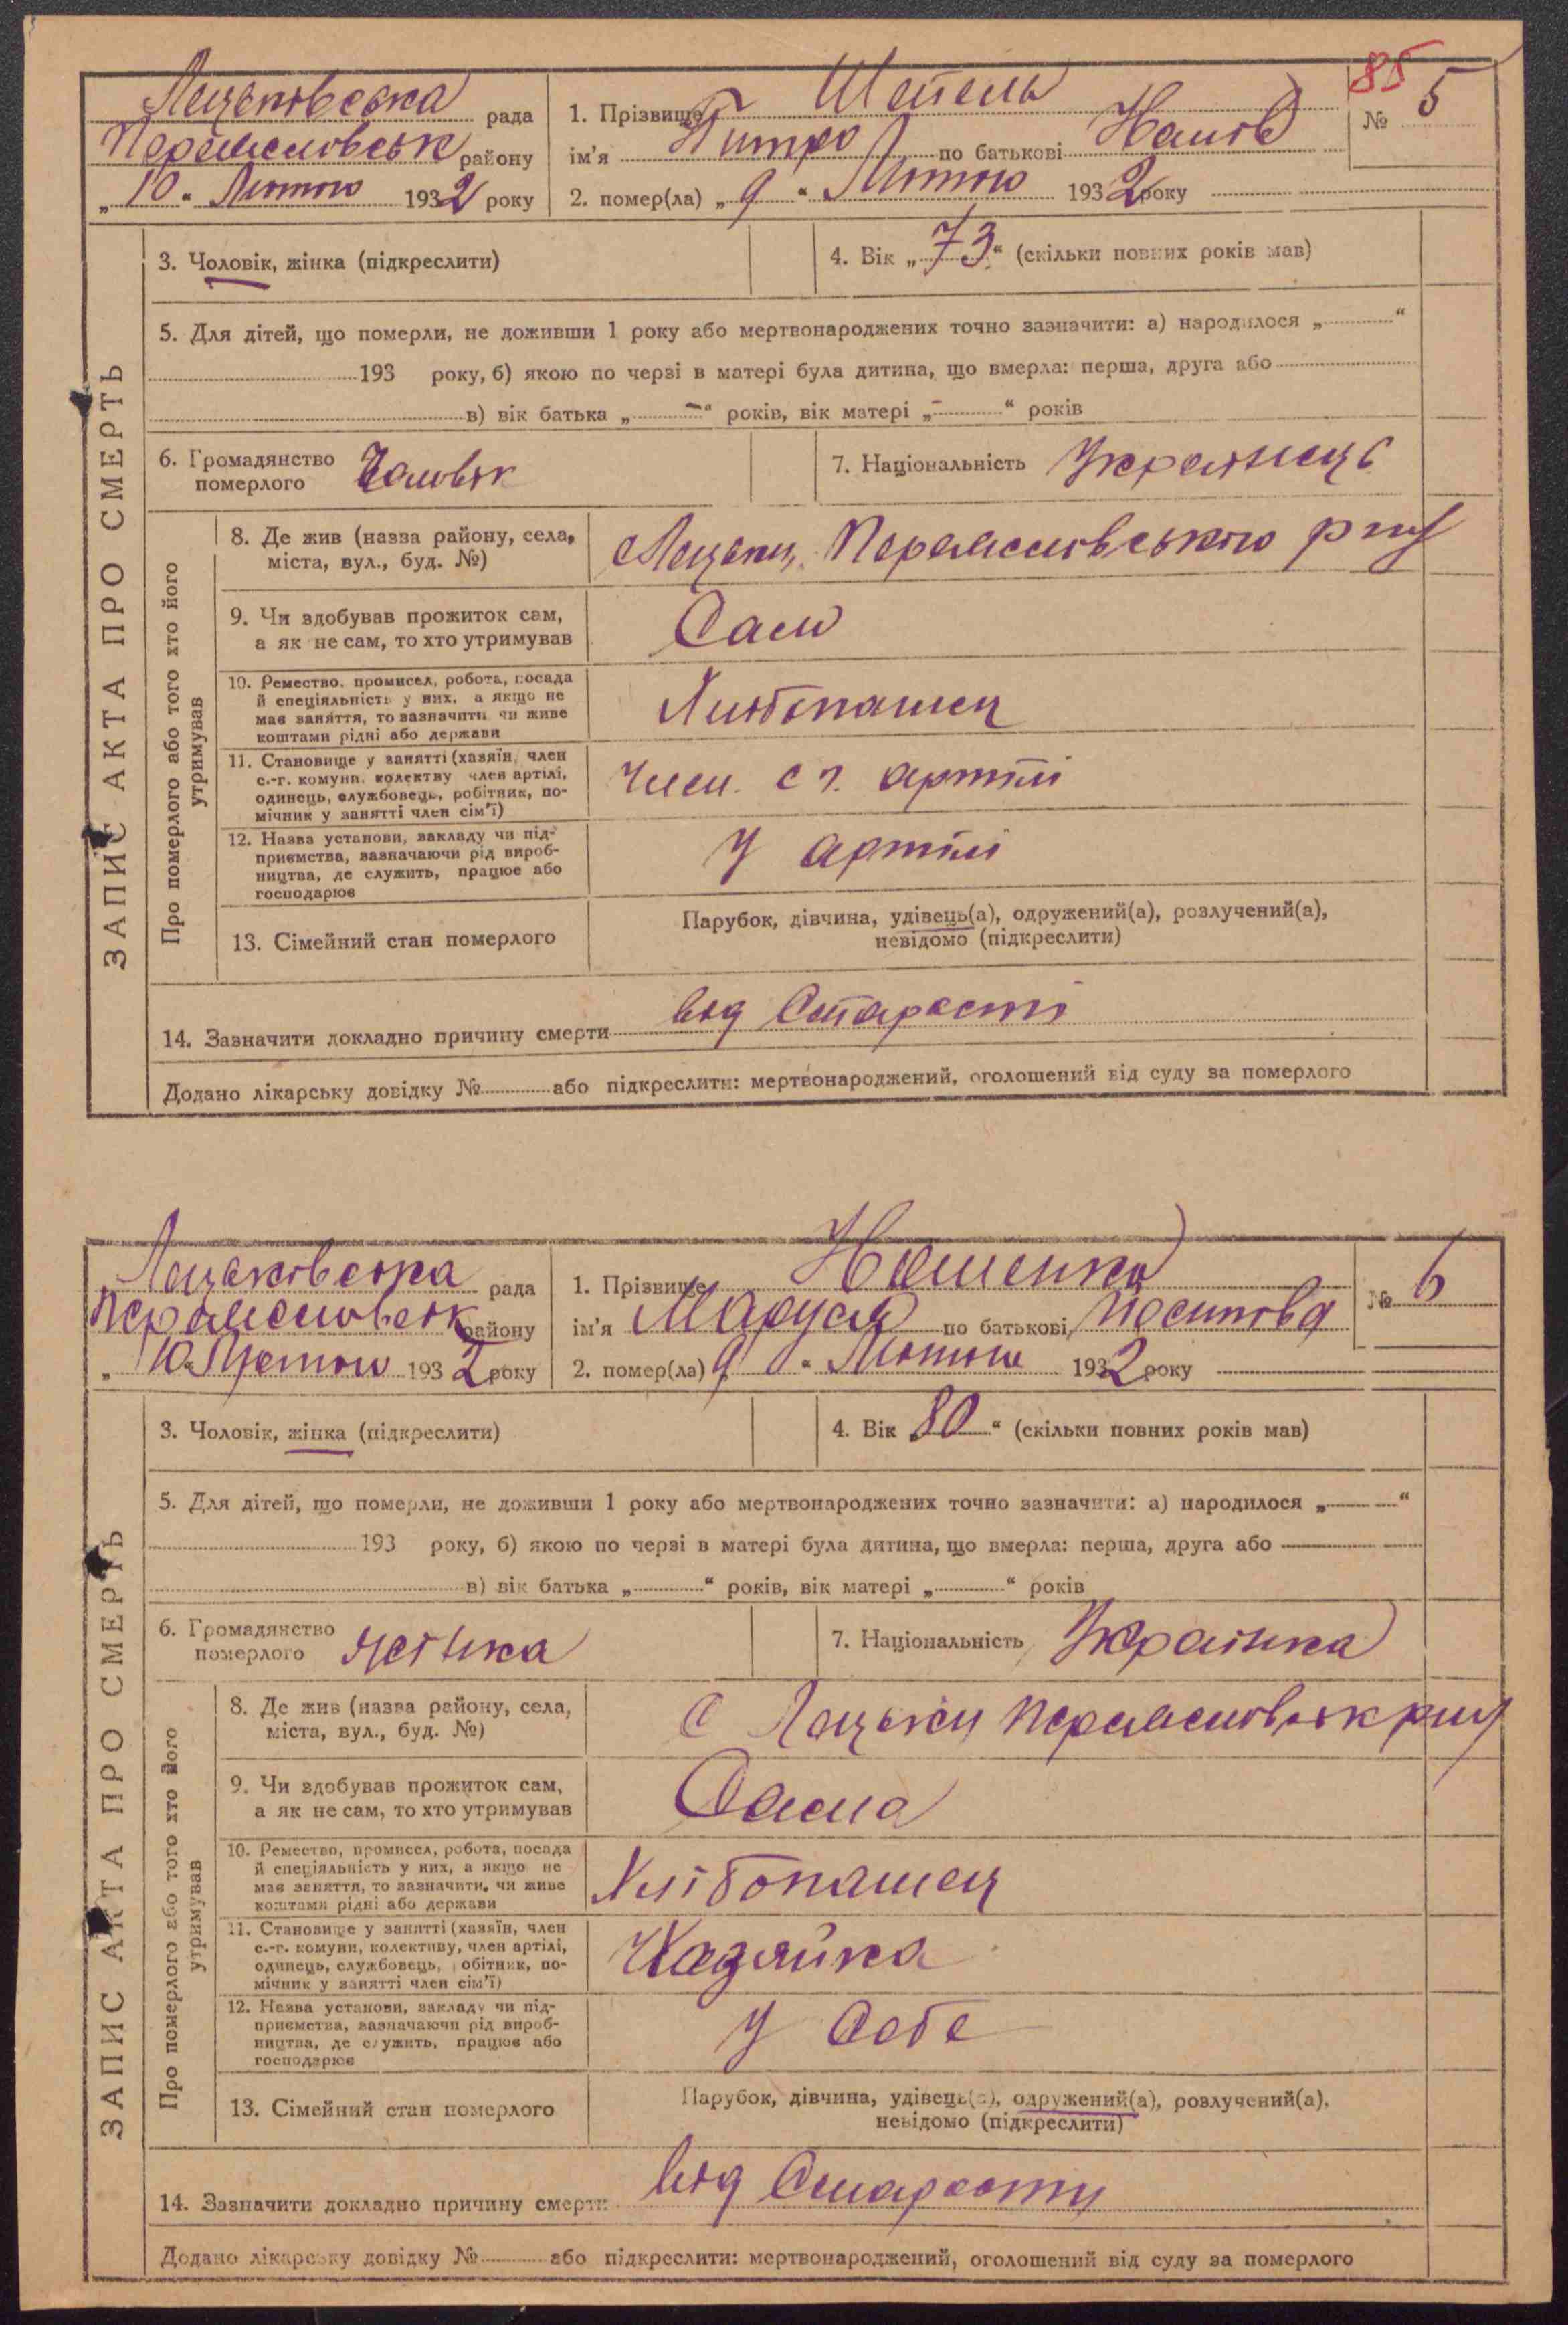 85
Лецьковська рада
Переяславськ району
„10“ Лютого 1932 року
1. Прізвище Шепель
ім'я Дмитро по батькові
2. помер(ла) „9“ Лютого 1932 року
№ 5
ЗАПИС АКТА ПРО СМЕРТЬ
3. Чоловік, жінка (підкреслити)
4. Вік „73“ (скільки повних років мав)
5. Для дітей, що померли, не доживши 1 року або мертвонароджених точно зазначити: а) народилося „ “
193 року, б) якою по черзі в матері була дитина, що вмерла: перша, друга або
в) вік батька „ - “ років, вік матері „ - “ років
6. Громадянство
померлого Чоловік
7. Національність Українець
Про померлого або того хто його
утримував
8. Де жив (назва району, села,
міста, вул., буд. №)
с Лецьки, Переяславського р-ну
9. Чи здобував прожиток сам,
а як не сам, то хто утримував
Сам
10. Ремество, промисел, робота, посада
й спеціяльність у них, а якщо не
має заняття, то зазначити чи живе
коштами рідні або держави
Хлібопашец
11. Становище у занятті (хазяїн, член
с.-г. комуни, колективу член артілі,
одинець, службовець, робітник, по-
мічник у занятті член сім'ї)
Член. с г. артілі
12. Назва установи, закладу чи під-
приємства, зазначаючи рід вироб-
ництва, де служить, працює або
господарює
У артілі
13. Сімейний стан померлого
Парубок, дівчина, удівець(а), одружений(а), розлучений(а),
невідомо (підкреслити)
14. Зазначити докладно причину смерти від Старости
Додано лікарську довідку № або підкреслити: мертвонароджений, оголошений від суду за померлого
Лецьковська рада
Переяславськ району
„10“ Лютого 1932 року
1. Прізвище
ім'я Маруся по батькові Йосипова
2. помер(ла) „9“ Лютого 1932 року
№ 6
ЗАПИС АКТА ПРО СМЕРТЬ
3. Чоловік, жінка (підкреслити)
4. Вік „80“ (скільки повних років мав)
5. Для дітей, що померли, не доживши 1 року або мертвонароджених точно зазначити: а) народилося „ “
193 року, б) якою по черзі в матері була дитина, що вмерла: перша, друга або
в) вік батька „ “ років, вік матері „ “ років
6. Громадянство
померлого Жінка
7. Національність Українка
Про померлого або того хто його
утримував
8. Де жив (назва району, села,
міста, вул., буд. №)
С Лецьки Переяславськ р-ну
9. Чи здобував прожиток сам,
а як не сам, то хто утримував
Сама
10. Ремество, промисел, робота, посада
й спеціяльність у них, а якщо не
має заняття, то зазначити, чи живе
коштами рідні або держави
Хлібопашец
11. Становище у занятті (хазяїн, член
с.-г. комуни, колективу, член артілі,
одинець, службовець, робітник, по-
мічник у занятті член сім'ї)
Хазяйка
12. Назва установи, закладу чи під-
приємства, зазначаючи рід вироб-
ництва, де служить, працює або
господарює
У Себе
13. Сімейний стан померлого
Парубок, дівчина, удівець(а), одружений(а), розлучений(а),
невідомо (підкреслити)
14. Зазначити докладно причину смерти від Старости
Додано лікарську довідку № або підкреслити: мертвонароджений, оголошений від суду за померлого